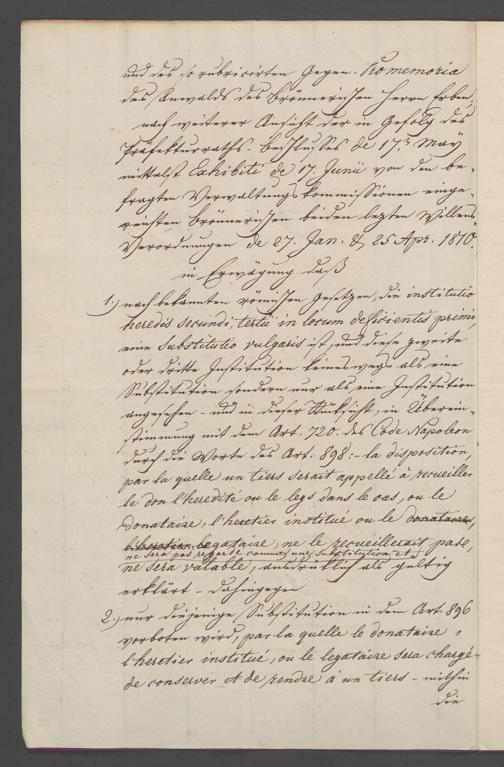 und des so rubricirten Gegen-Promemoria
des Anwalds des Brönnerischen Herrn Erben,
nach weiterer Ansicht der in Gefolg des
Präfekturraths-Beschlusses de 17n May
mittelst Exhibiti de 17. Junii von den be-
fragten Verwaltungskommissionen einge-
reichten Brönnerischen beiden lezten Willens
Verordnungen de 27. Jan. & 25 Apr. 1810.
in Erwägung daß
1.) nach bekannten römischen Gesetzen, die institutio
heredis secundi, tertii in locum deficientis primi
eine Substitutio vulgaris ist, und diese zweite
oder dritte Institution keineswegs als eine
Substitution sondern nur als eine Institution
angesehen - und in dieser Rücksicht, in Überein-
stimmung mit dem Art. 720. des Code Napoleon
durch die Worte des Art. 898:- la disposition,
par la quelle un tiers serait appellé à recueiller
le don l'heredité ou le legs dans le cas, ou le
donataire, l'heretier institué ou le donataire,
legataire, ne le recueillerait pas,
ne sera pas regardé comme une Substitution et
ne sera valable, ausdrüklich als gültig
erklärt - dahingegen
2.) nur diejenige Substitution in dem Art. 896
verboten wird, par la quelle le donataire,
l'heretier institué, ou le legataire sera chargé
de conserver et de rendre à un tiers - mithin
die